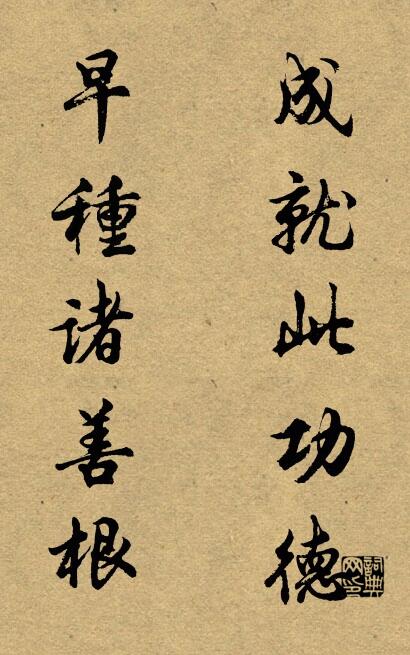 成就此功德
早種诸善根
詞典網印